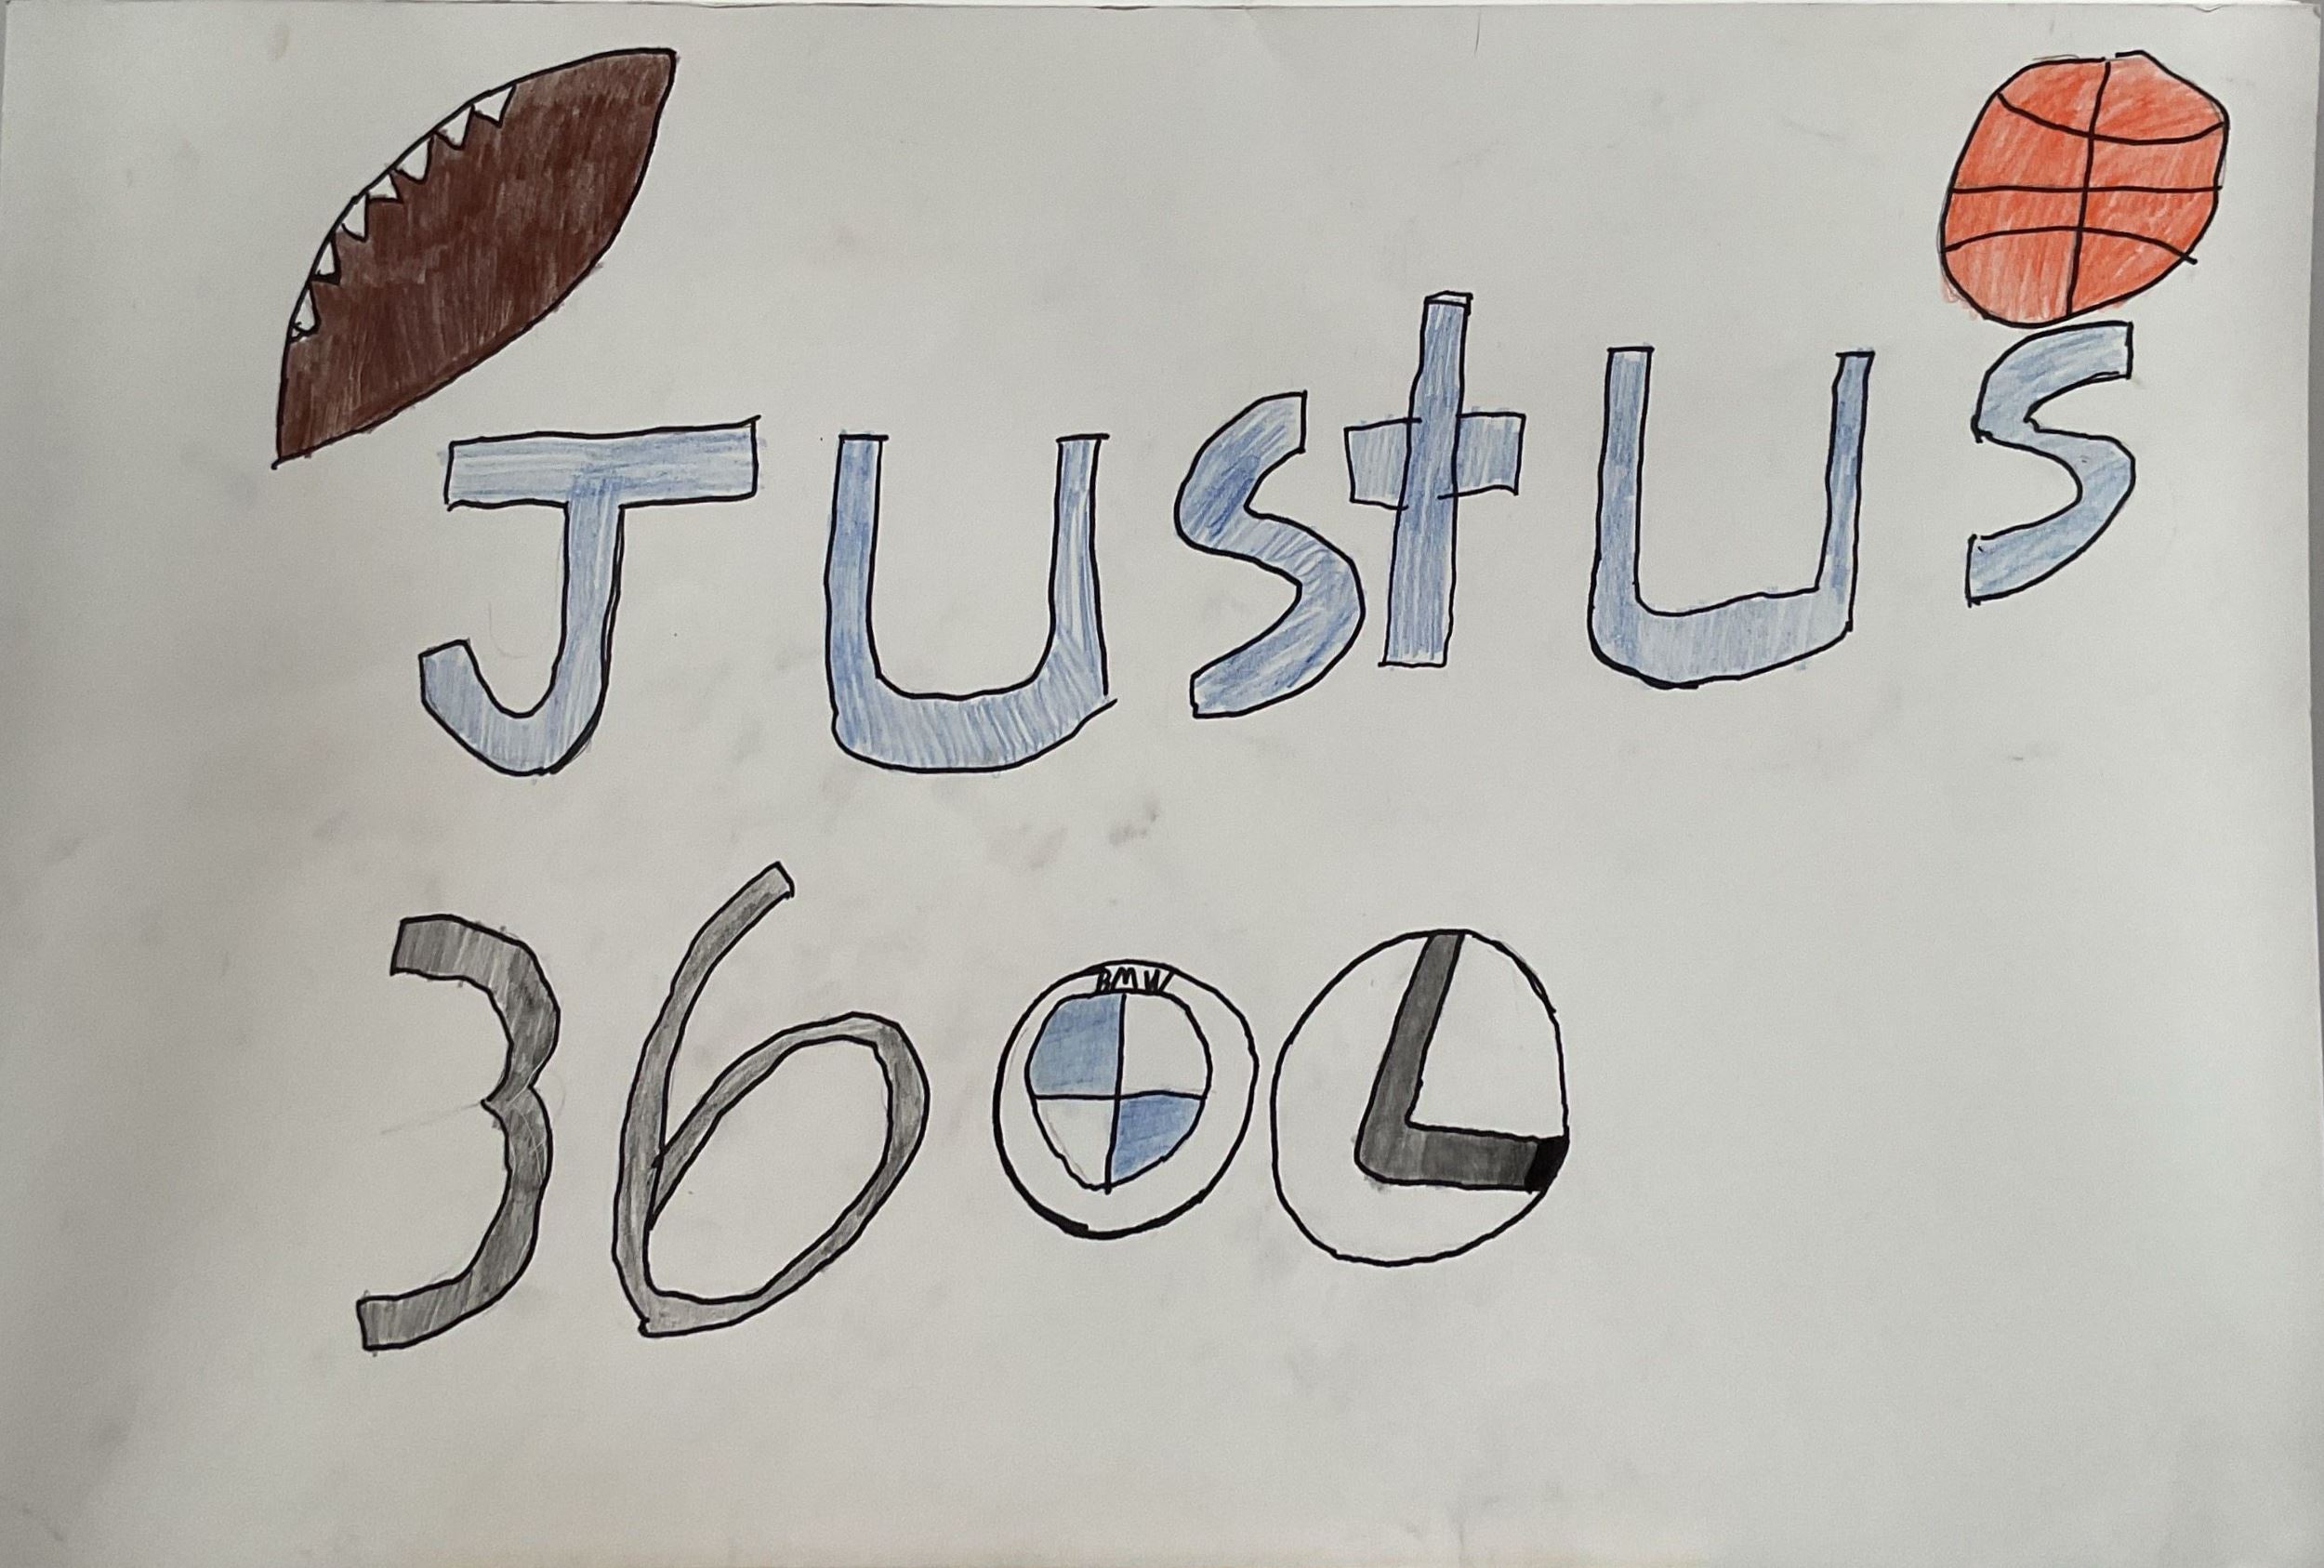 JUStUS
36
BMW
L